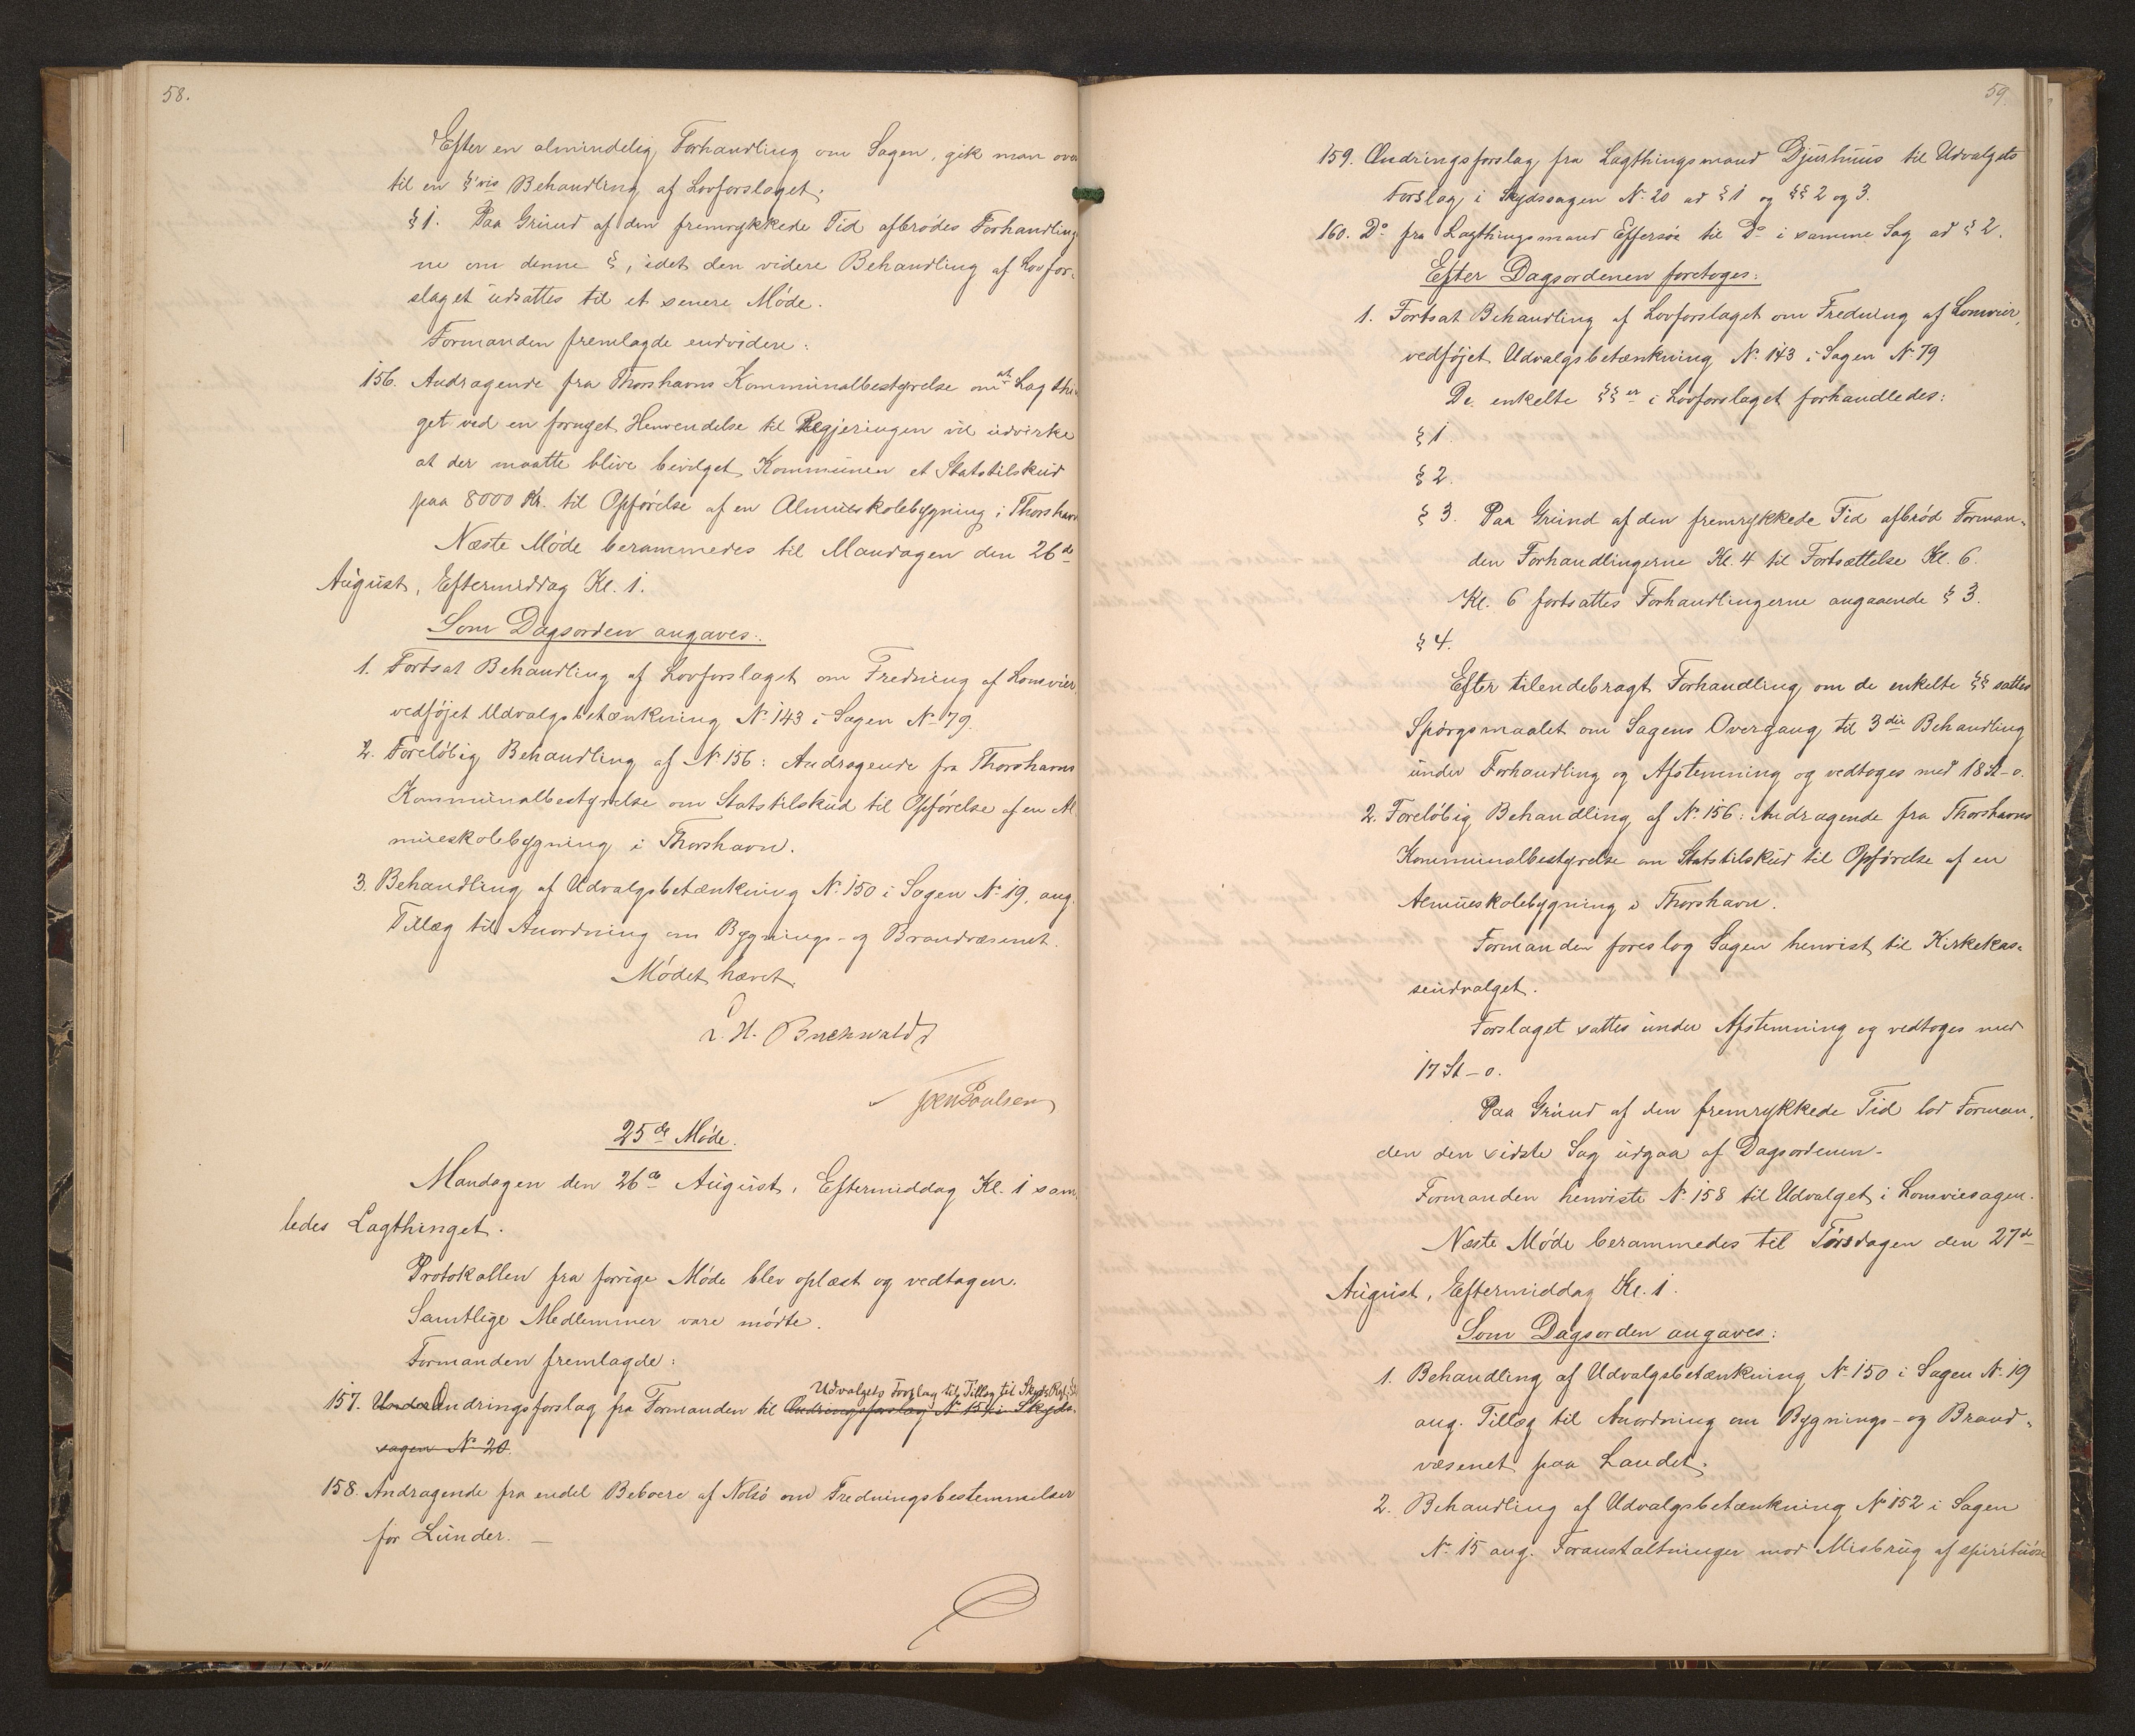 58.
Efter en almindelig Forhandling om Sagen, gik man over
til en §'vis Behandling af Lovforslaget.
§ 1. Paa Grund af den fremrykkede Tid afbrødes Forhandling
ne om denne §, idet den videre Behandling af Lovfor-
slaget udsattes til et senere Møde.
Formanden fremlagde endvidere:
156. Andragende fra Thorshavns Kommunalbestyrelse om at Lagthi
get ved en fornyet Henvendelse til Regjeringen vil udvirke
at der maatte blive bevilget Kommunen et Statstilskud
paa 8000 Kr. til Opførelse af en Almueskolebygning i Thorshavn
Næste Møde berammedes til Mandagen den 26de
August, Eftermiddag Kl. 1.
Som Dagsorden angaves:
1. Fortsat Behandling af Lovforslaget om Fredning af Lomvier,
vedføjet Udvalgsbetænkning No 143 i Sagen No 79.
2. Foreløbig Behandling af No 156: Andragende fra Thorshavns
Kommunalbestyrelse om Statstilskud til Opførelse af en Al
mueskolebygning i Thorshavn.
3. Behandling af Udvalgsbetænkning No 150 i Sagen No 19, ang.
Tillæg til Anordning om Bygnings- og Brandvæsenet.
Mødet hævet.
L. H. Buchwaldt
Joen Poulsen
25de Møde.
Mandagen den 26de August, Eftermiddag Kl. 1 sam
ledes Lagthinget.
Protokollen fra forrige Møde blev oplæst og vedtagen.
Samtlige Medlemmer vare mødte.
Formanden fremlagde:
Udvalgets Forslag til Tillæg til Skyds Regl.
157. Under Ændringsforslag fra Formanden til Ændringsforslag No 154 i Skyds-
sagen No 20.
158. Andragende fra endel Beboere af Nolsø om Fredningsbestemmelser
for Lunder. —
59.
159. Ændringsforslag fra Lagthingsmand Djurhuus til Udvalgets
Forslag i Skydssagen No 20 ad § 1 og §§ 2 og 3.
160. Do fra Lagthingsmand Effersøe til Do i samme Sag ad § 2.
Efter Dagsordenen foretoges:
1. Fortsat Behandling af Lovforslaget om Fredning af Lomvier,
vedføjet Udvalgsbetænkning No 143 i Sagen No 79
De enkelte §§er i Lovforslaget forhandledes:
§ 1.
§ 2.
§ 3. Paa Grund af den fremrykkede Tid afbrød Forman-
den Forhandlingerne Kl. 4 til Fortsættelse Kl. 6.
Kl. 6 fortsattes Forhandlingerne angaaende § 3.
§ 4.
Efter tilendebragt Forhandling om de enkelte §§ sattes
Spørgsmaalet om Sagens Overgang til 3die Behandling
under Forhandling og Afstemning og vedtoges med 18 St - 0.
2. Foreløbig Behandling af No 156: Andragende fra Thorshavns
Kommunalbestyrelse om Statstilskud til Opførelse af en
Almueskolebygning i Thorshavn.
Formanden foreslog Sagen henvist til Kirkekas-
seudvalget.
Forslaget sattes under Afstemning og vedtoges med
17 St - 0.
Paa Grund af den fremrykkede Tid lod Forman-
den den sidste Sag udgaa af Dagsordenen.
Formanden henviste No 158 til Udvalget i Lomviesagen.
Næste Møde berammedes til Tirsdagen den 27de
August, Eftermiddag Kl. 1.
Som Dagsorden angaves:
1. Behandling af Udvalgsbetænkning No 150 i Sagen No 19
ang. Tillæg til Anordning om Bygnings- og Brand-
væsenet paa Landet.
2. Behandling af Udvalgsbetænkning No 152 i Sagen
No 15 ang. Foranstaltninger mod Misbrug af spirituøse